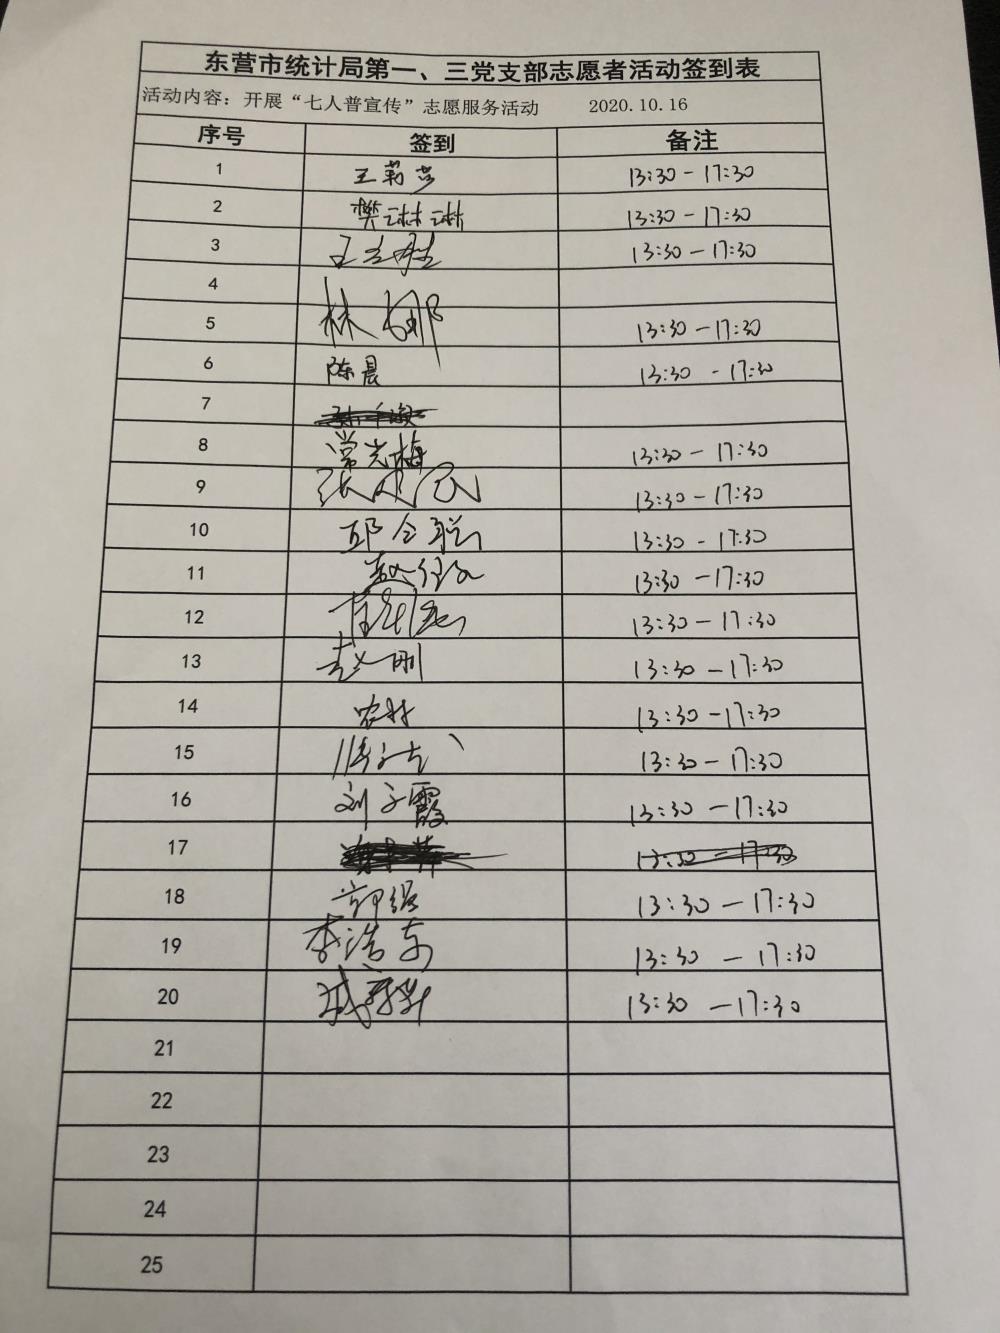 东营市统计局第一、三党支部志愿者活动签到表
活动内容：开展“七人普宣传”志愿服务活动 2020.10.16
序号 签到 备注
1 王莉莎 13:30-17:30
2 樊琳琳 13:30-17:30
3 王 13:30-17:30
4
5 林娜 13:30-17:30
6 陈晨 13:30-17:30
7
8 常光梅 13:30-17:30
9 张 13:30-17:30
10 邱会聪 13:30-17:30
11 13:30-17:30
12 13:30-17:30
13 赵刚 13:30-17:30
14 13:30-17:30
15 13:30-17:30
16 刘子霞 13:30-17:30
17 13:30-17:30
18 13:30-17:30
19 李浩东 13:30-17:30
20 13:30-17:30
21
22
23
24
25